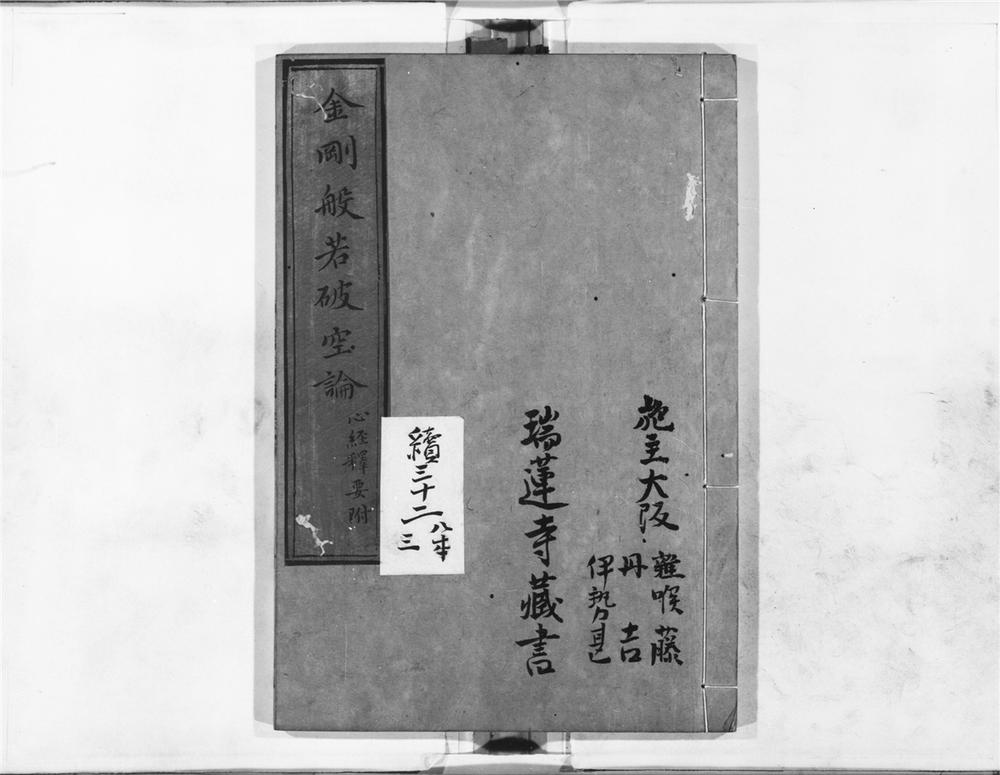 施主大阪
雜喉藤
丹吉
伊勢甚
瑞蓮寺藏書
續三十二
八本
三
金剛般若破空論
心経釋要附